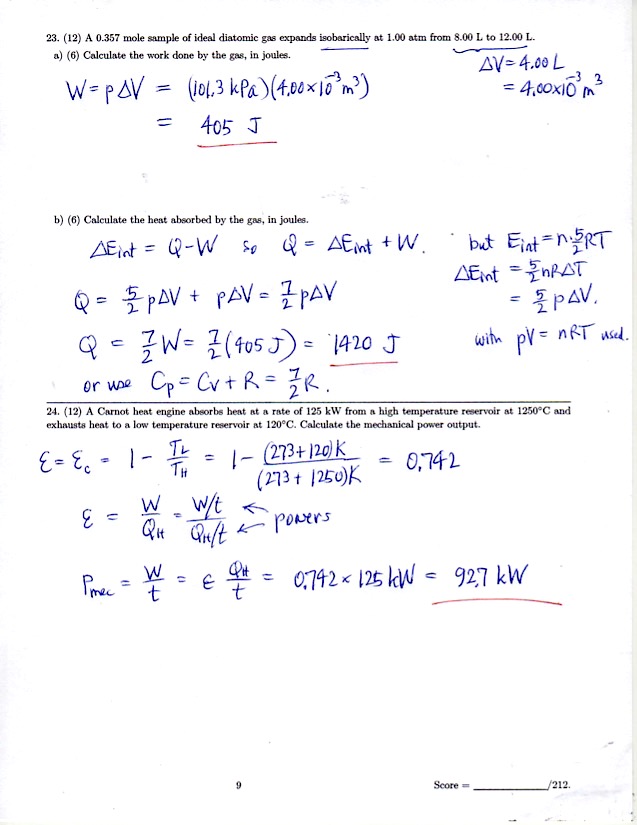 23. (12) A 0.357 mole sample of ideal diatomic gas expands isobarically at 1.00 atm from 8.00 L to 12.00 L.
a) (6) Calculate the work done by the gas, in joules.
ΔV = 4.00 L
= 4.00×10⁻³ m³
W = pΔV = (101.3 kPa)(4.00×10⁻³ m³)
= 405 J
b) (6) Calculate the heat absorbed by the gas, in joules.
ΔEint = Q-W so Q = ΔEint + W.
but Eint = n·5/2RT
ΔEint = 5/2nRΔT
= 5/2 pΔV.
with pV = nRT used.
Q = 5/2 pΔV + pΔV = 7/2 pΔV
Q = 7/2 W = 7/2 (405 J) = 1420 J
or use Cp = Cv + R = 7/2 R.
24. (12) A Carnot heat engine absorbs heat at a rate of 125 kW from a high temperature reservoir at 1250°C and
exhausts heat to a low temperature reservoir at 120°C. Calculate the mechanical power output.
ε = εc = 1 - TL/TH = 1 - (273+120)K/(273+1250)K = 0.742
ε = W/QH = W/t / QH/t ← powers
Pmec = W/t = ε QH/t = 0.742 × 125 kW = 92.7 kW
9
Score = ________/212.